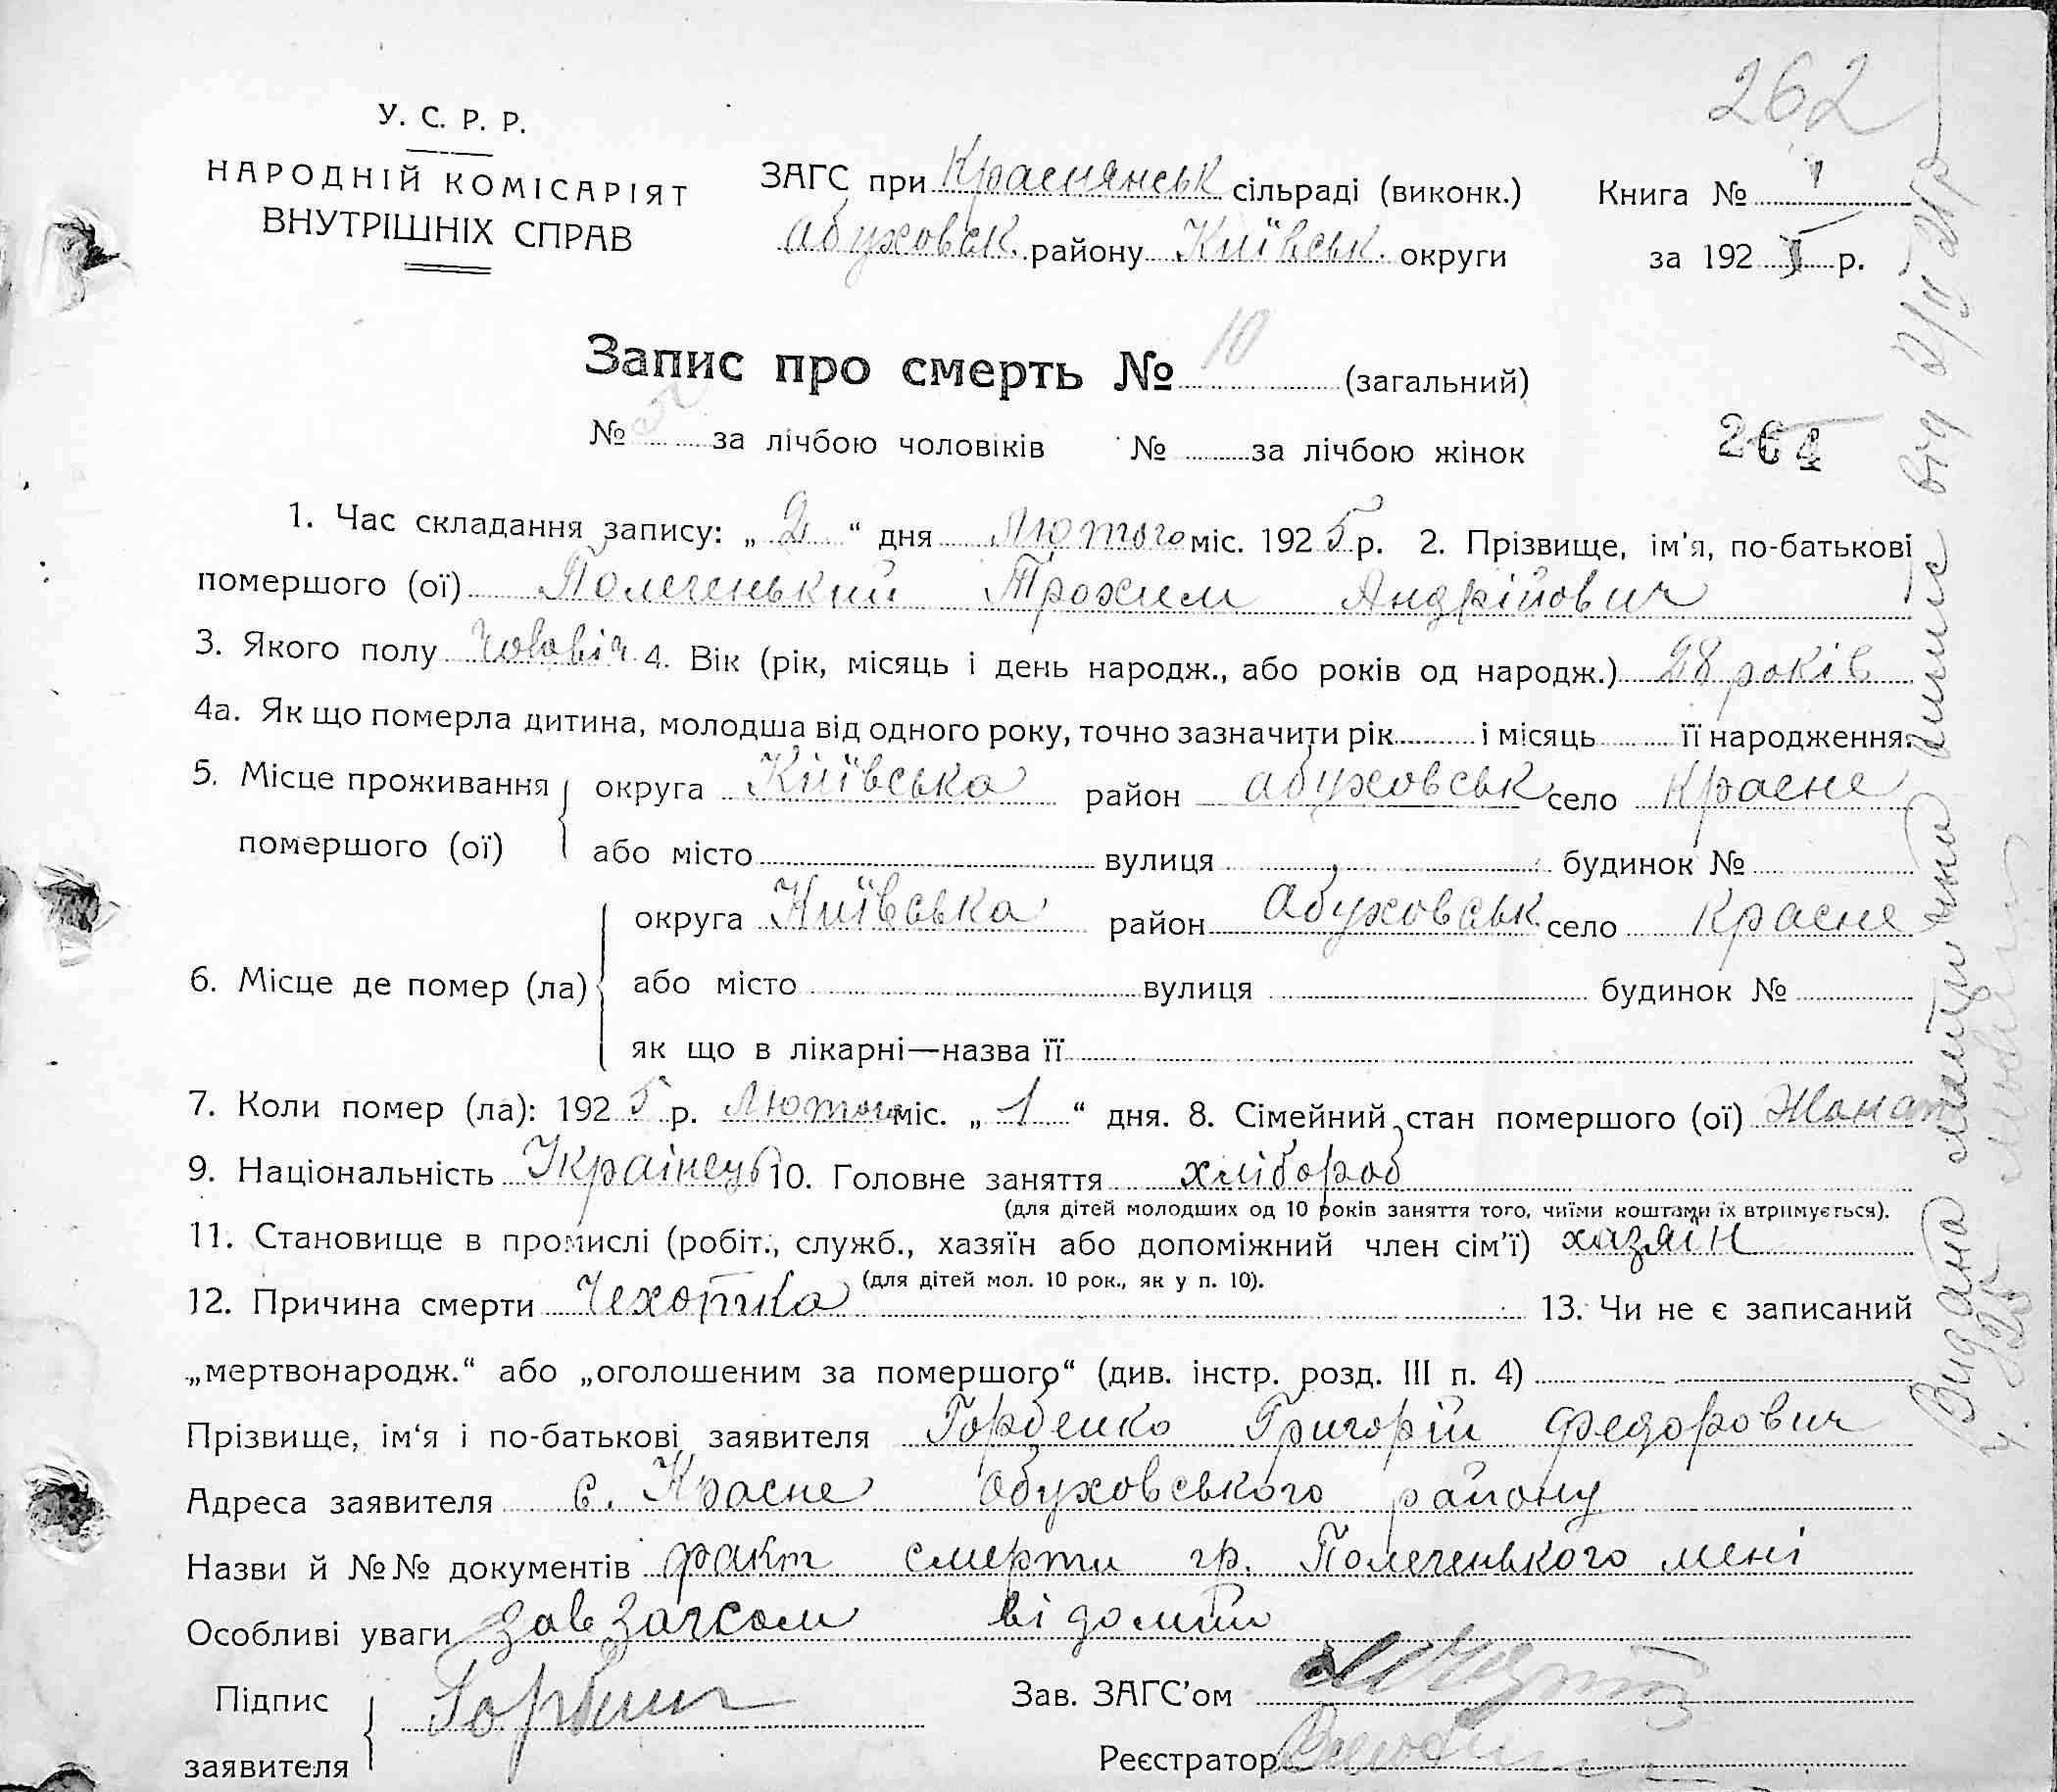 262
У. С. Р. Р.
НАРОДНІЙ КОМІСАРІЯТ
ВНУТРІШНІХ СПРАВ
ЗАГС при Краснянськ сільраді (виконк.)
Обуховськ. району Київськ. округи
Книга №
за 1925 р.
Запис про смерть № 10 (загальний)
№ 5 за лічбою чоловіків № за лічбою жінок
264
1. Час складання запису: „ 2 “ дня Лютого міс. 1925 р. 2. Прізвище, ім'я, по-батькові
помершого (ої) Полегенький Трохим Андрійович
3. Якого полу Чоловіч 4. Вік (рік, місяць і день народж., або років од народж.) 28 років
4а. Як що померла дитина, молодша від одного року, точно зазначити рік і місяць її народження.
5. Місце проживання помершого (ої) округа Київська район Абуховськ село Красне
або місто вулиця будинок №
6. Місце де помер (ла) округа Київська район Абуховськ. село Красне
або місто вулиця будинок №
як що в лікарні—назва її
7. Коли помер (ла): 1925 р. Лютого міс. „ 1 “ дня. 8. Сімейний стан помершого (ої) Жонат
9. Національність Українець 10. Головне заняття хлібороб
(для дітей молодших од 10 років заняття того, чиїми коштами їх втримується).
11. Становище в промислі (робіт., служб., хазяїн або допоміжний член сім'ї) хазяїн
(для дітей мол. 10 рок., як у п. 10).
12. Причина смерти Чехотка 13. Чи не є записаний
„мертвонародж.“ або „оголошеним за помершого“ (див. інстр. розд. III п. 4)
Прізвище, ім'я і по-батькові заявителя Горбенко Григорій Федорович
Адреса заявителя с. Красне Обуховського району
Назви й №№ документів факт смерти гр. Полегенького мені
Особливі уваги Зав Загсом відомий
Підпис заявителя
Зав. ЗАГС'ом
Реєстратор
Видана